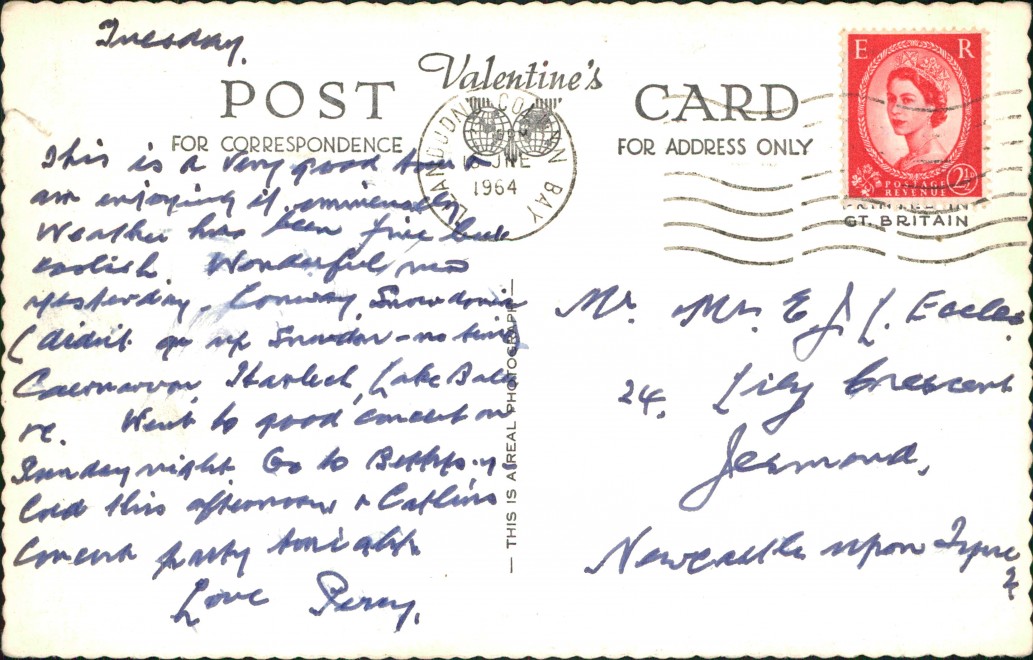 Tuesday.
Valentine's
POST CARD
FOR CORRESPONDENCE
FOR ADDRESS ONLY
LLANDUDNO COLWYN BAY
JUNE
1964
E R
POSTAGE
REVENUE
2½
PRINTED IN
GT. BRITAIN
This is a very good
am enjoying it immensely
Weather has been fine but
coolish. Wonderful
yesterday, Conway, Snowdonia
(didn't go up Snowdon - no time
Caernarvon, Harlech, Lake Bala
etc. Went to good concert on
Sunday night. Go to Bettws.y
Coed this afternoon & Catlins
Concert party tonight.
Love Percy.
— THIS IS A REAL PHOTOGRAPH —
Mr. Mrs. E J. L. Eccles
24, Lily Crescent
Jesmond,
Newcastle upon Tyne
2